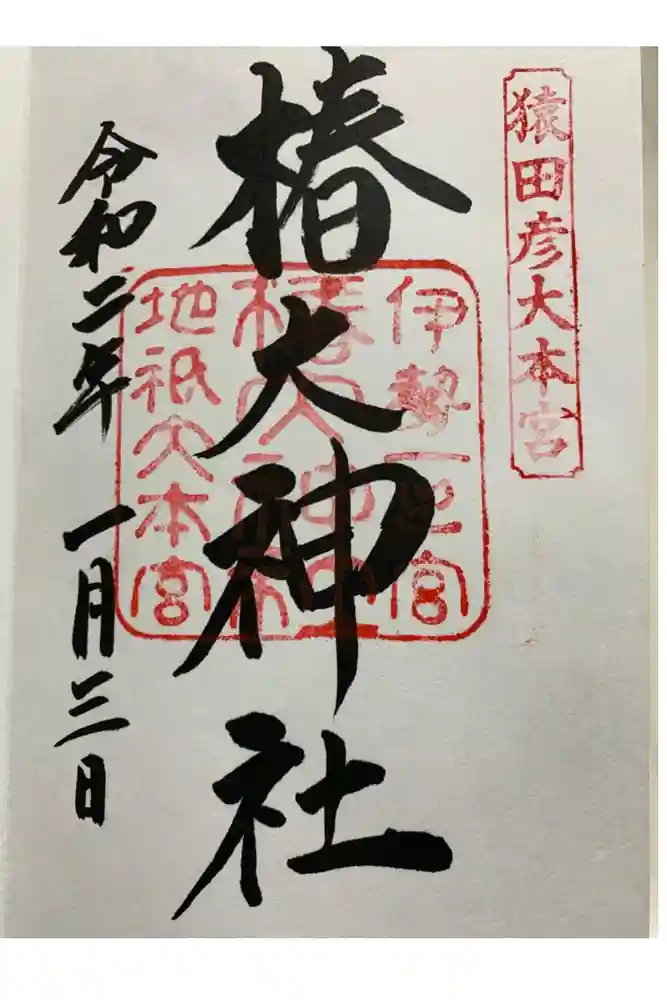 猿田彦大本宮
伊勢一之宮
椿大神社
地祇大本宮
椿大神社
令和二年一月三日